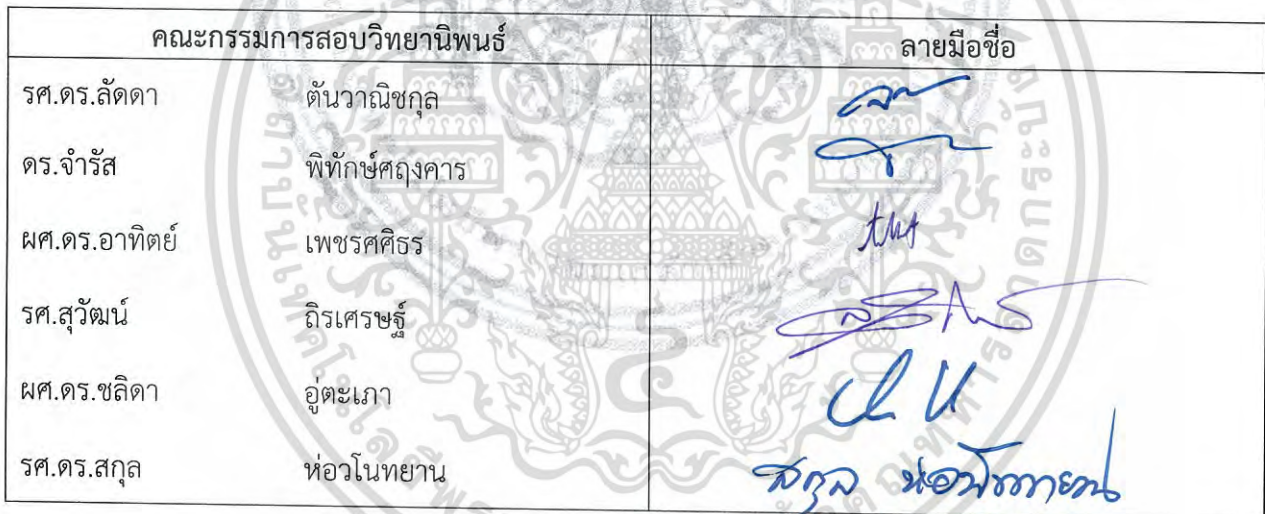 คณะกรรมการสอบวิทยานิพนธ์ ลายมือชื่อ
รศ.ดร.ลัดดา ตันวาณิชกุล
ดร.จำรัส พิทักษ์ศฤงคาร
ผศ.ดร.อาทิตย์ เพชรศศิธร
รศ.สุวัฒน์ ถิรเศรษฐ์
ผศ.ดร.ชลิดา อู่ตะเภา
รศ.ดร.สกุล ห่อวโนทยาน สกุล ห่อวโนทยาน